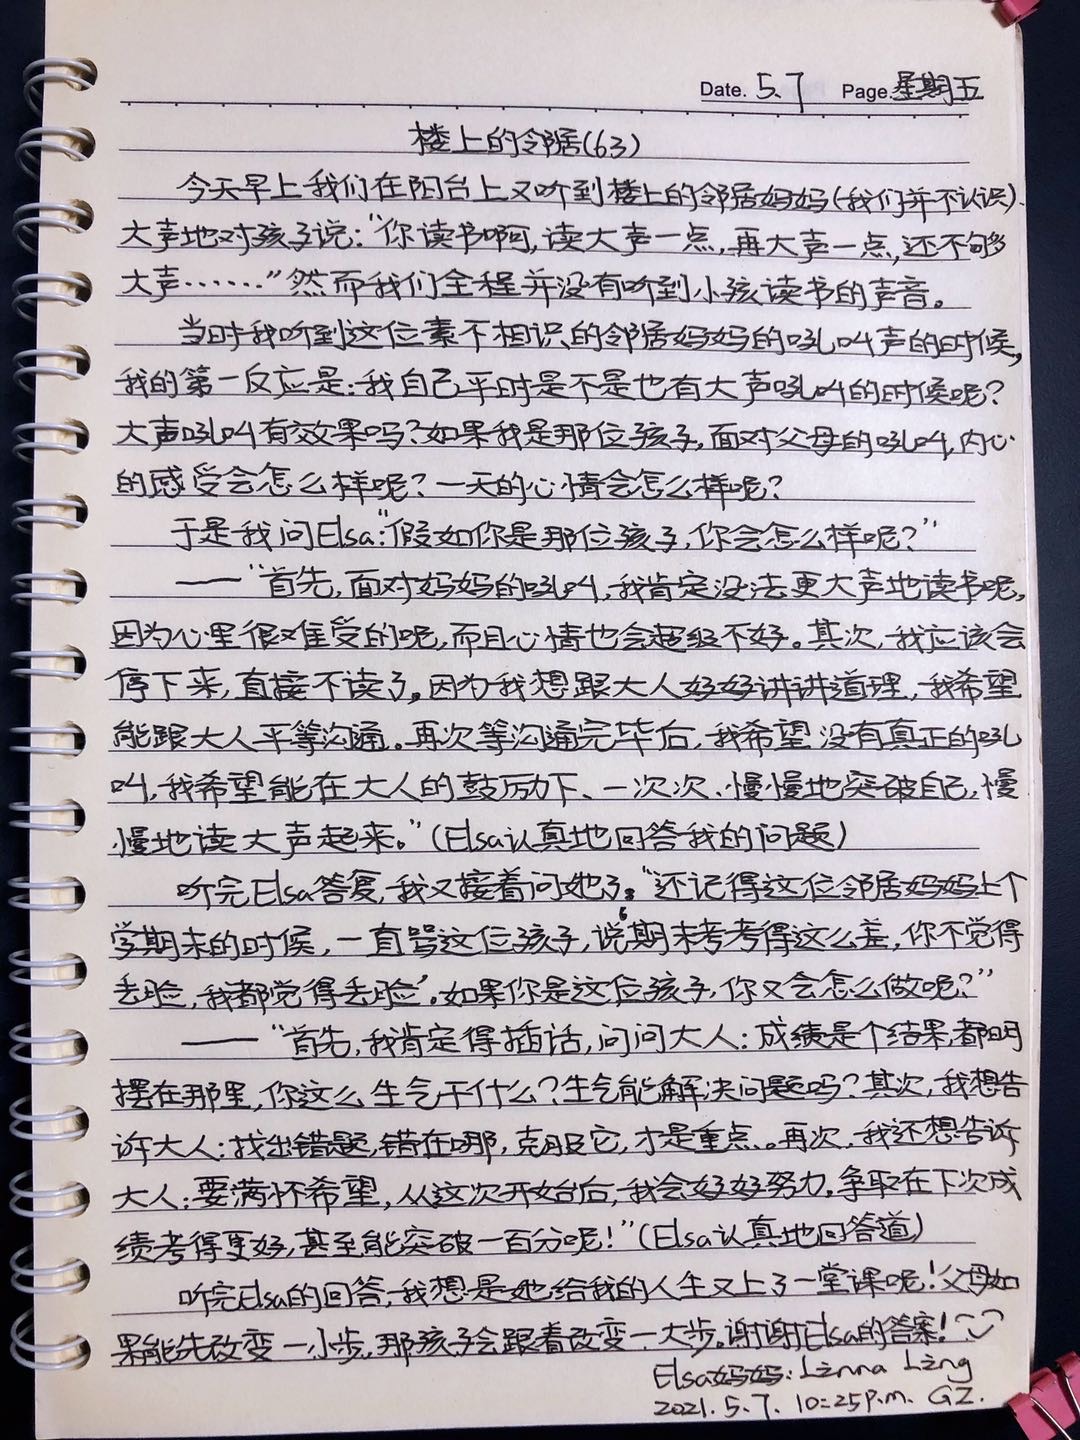 Date. 5.7 Page. 星期五
楼上的邻居(63)
今天早上我们在阳台上又听到楼上的邻居妈妈(我们并不认识)、
大声地对孩子说:“你读书啊,读大声一点,再大声一点,还不够
大声……”然而我们全程并没有听到小孩读书的声音。
当时我听到这位素不相识的邻居妈妈的吼叫声的时候,
我的第一反应是:我自己平时是不是也有大声吼叫的时候呢?
大声吼叫有效果吗?如果我是那位孩子,面对父母的吼叫,内心
的感受会怎么样呢?一天的心情会怎么样呢?
于是我问Elsa:“假如你是那位孩子,你会怎么样呢?”
——“首先,面对妈妈的吼叫,我肯定没法更大声地读书呢,
因为心里很难受的呢,而且心情也会超级不好。其次,我应该会
停下来,直接不读了。因为我想跟大人好好讲讲道理,我希望
能跟大人平等沟通。再次等沟通完毕后,我希望没有真正的吼
叫,我希望能在大人的鼓励下、一次次、慢慢地突破自己,慢
慢地读大声起来。”(Elsa认真地回答我的问题)
听完Elsa答复,我又接着问她了:“还记得这位邻居妈妈上个
学期末的时候,一直骂这位孩子,说‘期末考考得这么差,你不觉得
丢脸,我都觉得丢脸’。如果你是这位孩子,你又会怎么做呢?”
——“首先,我肯定得插话,问问大人:成绩是个结果,都明
摆在那里,你这么生气干什么?生气能解决问题吗?其次,我想告
诉大人:找出错题,错在哪,克服它,才是重点。再次,我还想告诉
大人:要满怀希望,从这次开始后,我会好好努力,争取在下次成
绩考得更好,甚至能突破一百分呢!”(Elsa认真地回答道)
听完Elsa的回答,我想是她给我的人生又上了一堂课呢!父母如
果能先改变一小步,那孩子会跟着改变一大步。谢谢Elsa的答案!
Elsa妈妈:Linna Ling
2021.5.7. 10:25p.m. GZ.